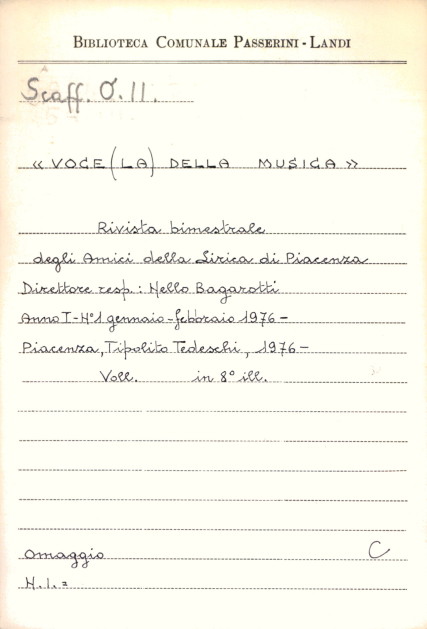 BIBLIOTECA COMUNALE PASSERINI - LANDI
Scaff. O. 11.
« VOCE (LA) DELLA MUSICA »
Rivista bimestrale
degli Amici della Lirica di Piacenza
Direttore resp.: Nello Bagarotti
Anno I - N° 1 gennaio - febbraio 1976 -
Piacenza, Tipolito Tedeschi, 1976 -
Voll. in 8° ill.
Omaggio C
N.I. =